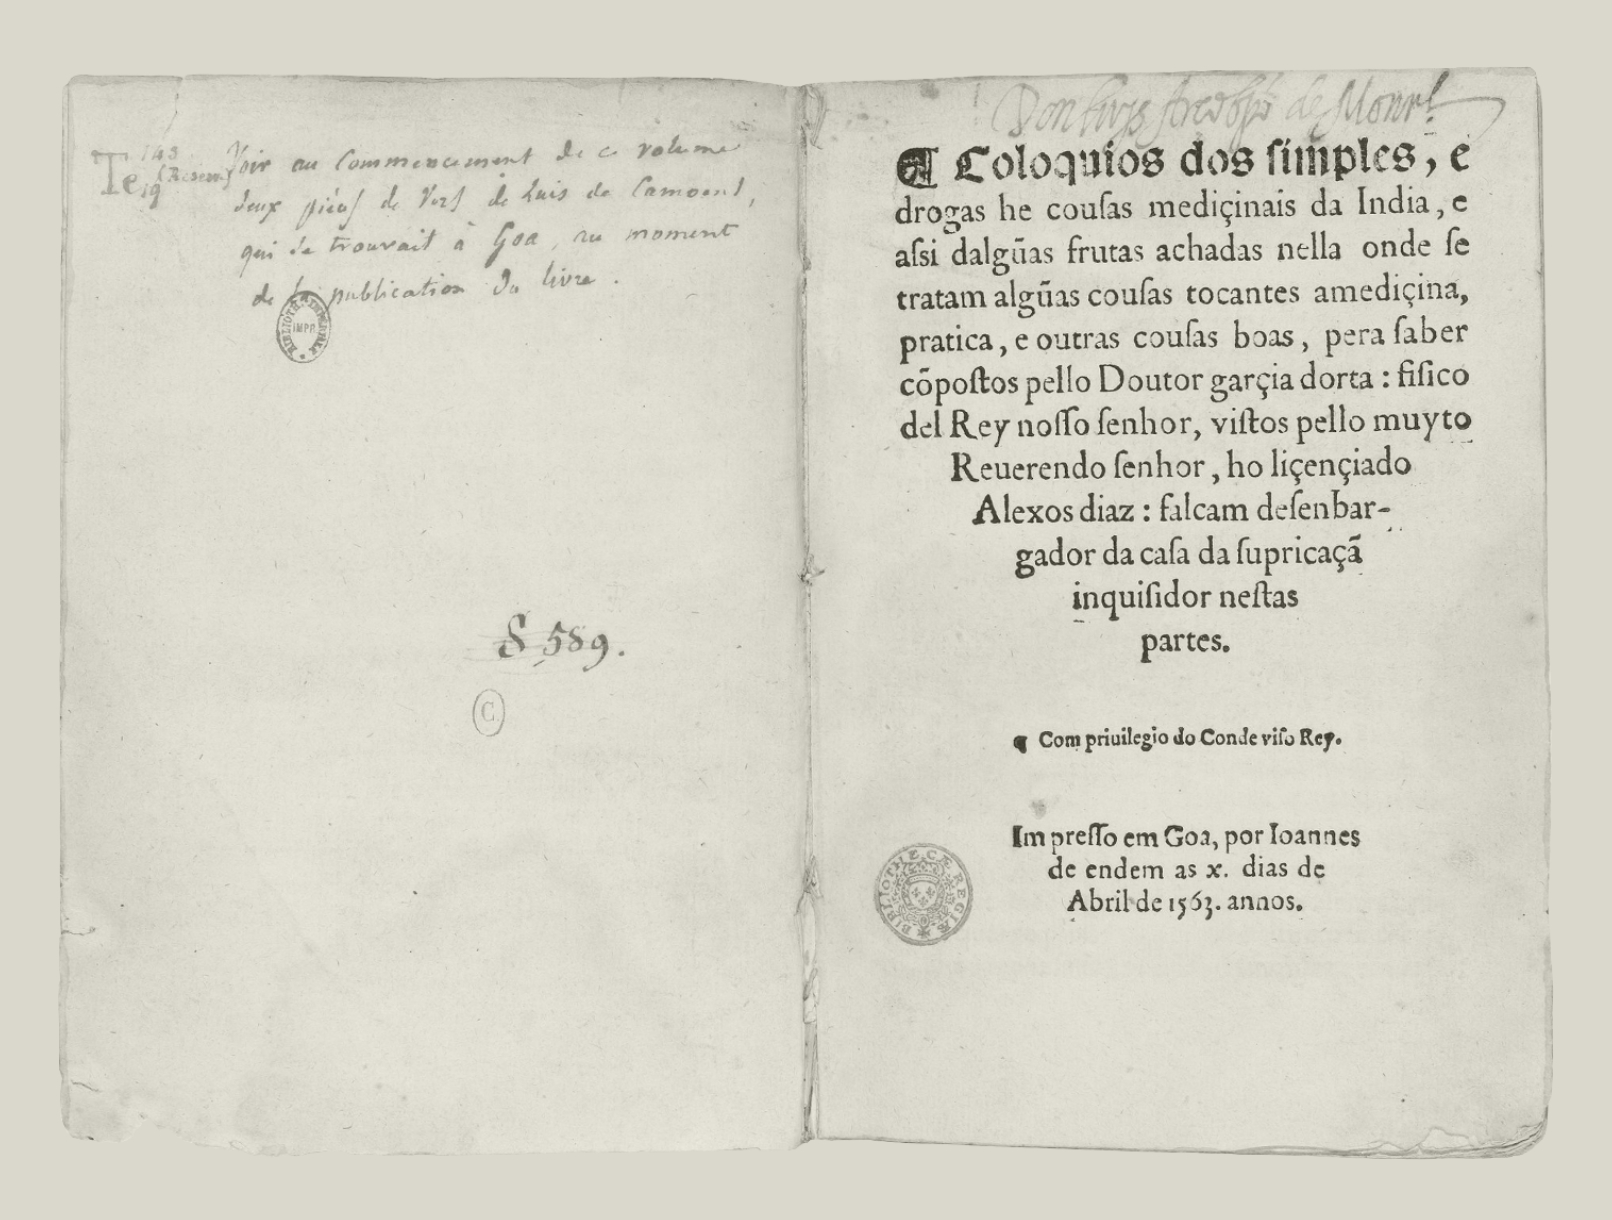 Te 143
19 (Reserv)
Voir au Commencement de ce volume
deux pièces de Vers de Luis de Camoens,
qui se trouvait à Goa, au moment
de la publication du livre.
BIBLIOTH. IMPERIALE
IMPR.
S 589.
C
Don de Monrl
¶ Coloquios dos ſimples, e
drogas he couſas mediçinais da India, e
aſsi dalgũas frutas achadas nella onde ſe
tratam algũas couſas tocantes amediçina,
pratica, e outras couſas boas, pera ſaber
cõpoſtos pello Doutor garçia dorta : fiſico
del Rey noſſo ſenhor, viſtos pello muyto
Reuerendo ſenhor, ho liçençiado
Alexos diaz : falcam deſenbar-
gador da caſa da ſupricaçã
inquiſidor neſtas
partes.
¶ Com priuilegio do Conde viſo Rey.
Impreſſo em Goa, por Ioannes
de endem as x. dias de
Abril de 1563. annos.
BIBLIOTHECÆ REGIÆ